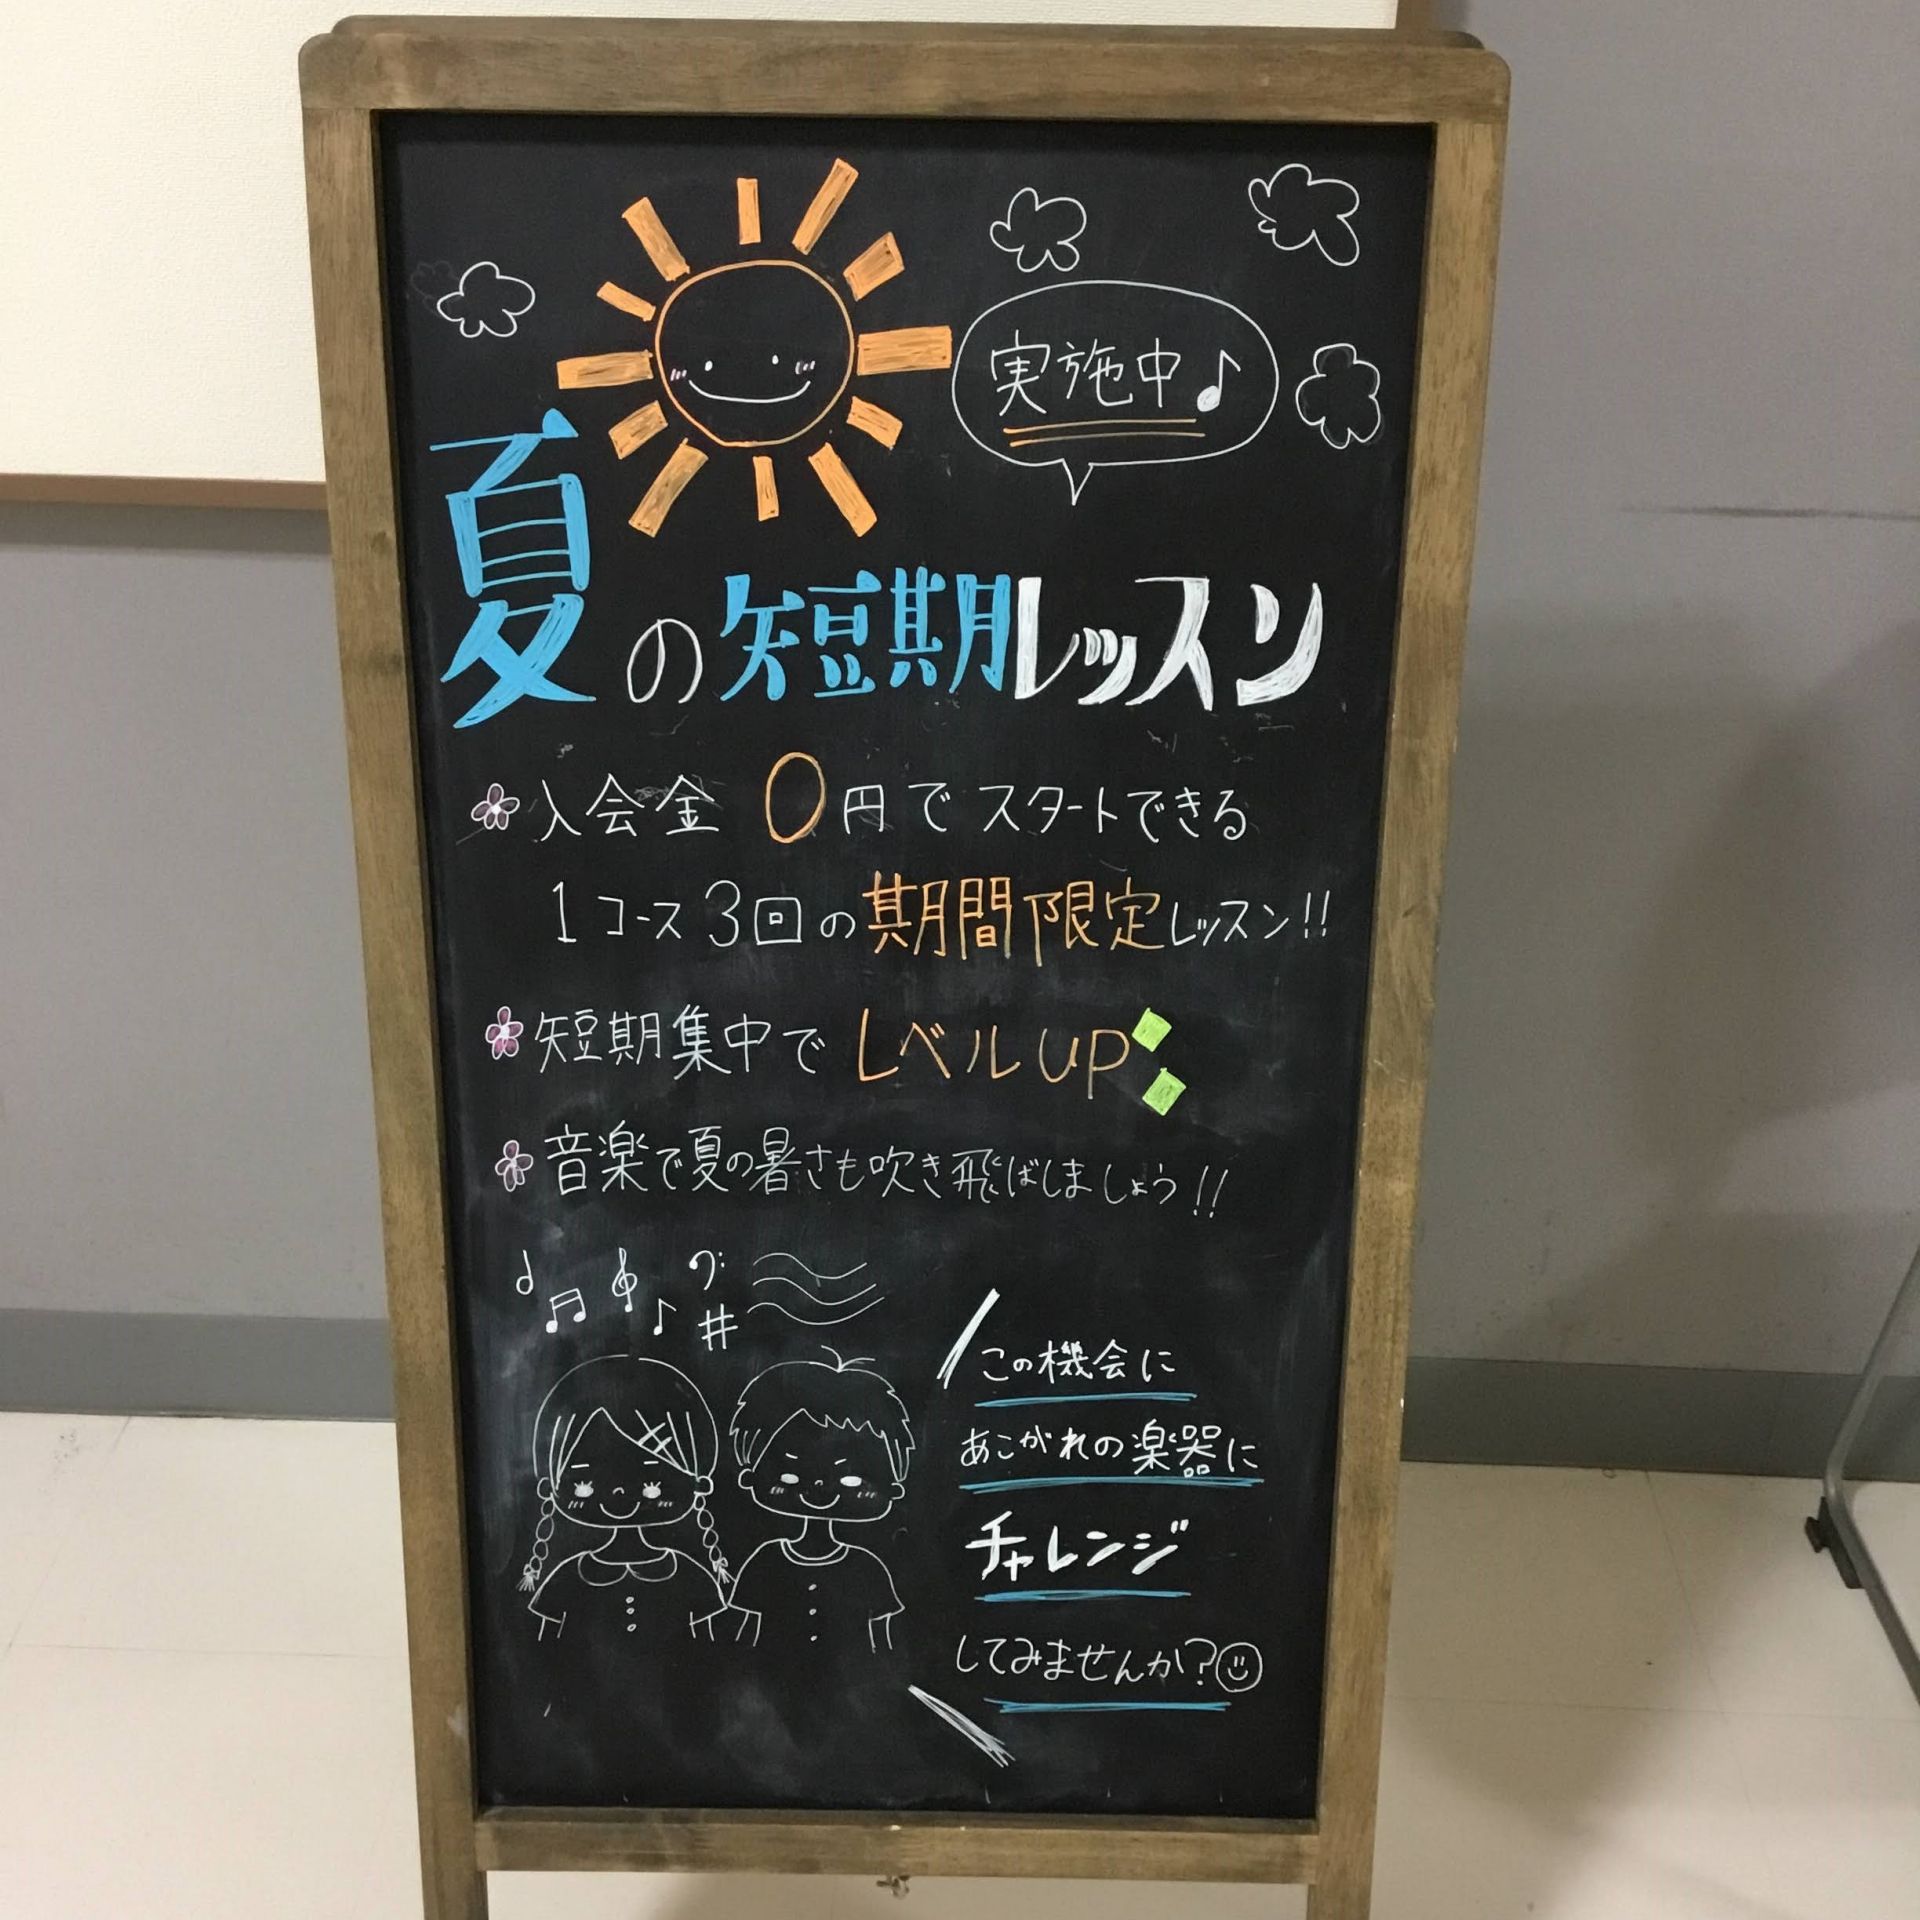 実施中♪
夏の短期レッスン
入会金 0円でスタートできる
1コース3回の期間限定レッスン!!
短期集中でレベルUP
音楽で夏の暑さも吹き飛ばしましょう!!
この機会に
あこがれの楽器に
チャレンジ
してみませんか?